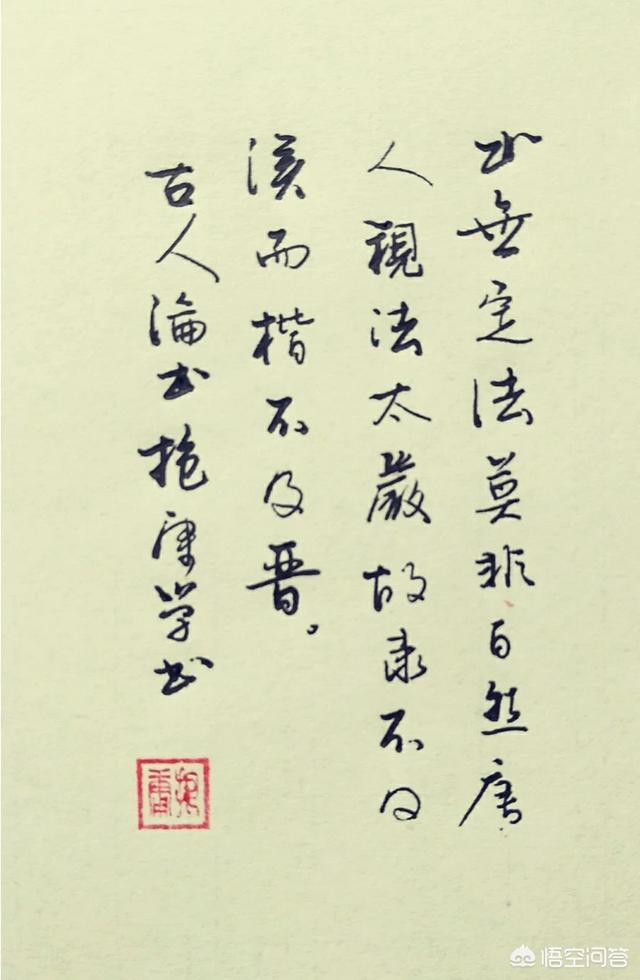 书無定法莫非自然唐
人視法太嚴故隶不及
漢而楷不及晋。
古人論书抱学书
悟空问答